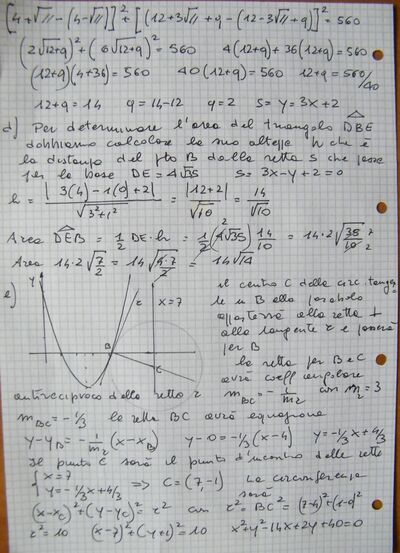 [4+√" - (4-√")]² + [(12+3√" + q - (12-3√" + q)]² = 560
(2√12+q)² + (6√12+q)² = 560 4(12+q) + 36(12+q) = 560
(12+q)(4+36) = 560 40(12+q) = 560 12+q = 560/40
12+q = 14 q = 14-12 q = 2 s = y = 3x+2
d) Per determinare l'area del triangolo DBE
dobbiamo calcolare la sua altezza h che è
la distanza del pto B dalla retta s che passa
per la base DE = 4√35 s = 3x-y+2=0
h = |3(4)-1(0)+2| / √3²+1² = |12+2| / √10 = 14/√10
Area DEB = 1/2 DE·h = 1/2 (4√35) 14/√10 = 14·2√35/10
Area 14·2√7/2 = 14√4·7/2 = 14√14
e) y
il centro C della circ. tangen
te in B alla parabola
apparterrà alla retta ⊥
alla tangente r e passerà
per B
r x=7
B
C
la retta per B e C
avrà coeff angolare
antireciproco della retta r m BC = -1/m r con m r = 3
m BC = -1/3 la retta BC avrà equazione
y-yB = -1/m r (x-xB) y-0 = -1/3(x-4) y = -1/3x+4/3
Il punto C sarà il punto d'incontro delle rette
{x=7 y=-1/3x+4/3 ⇒ C=(7,-1) La circonferenza
sarà
(x-xc)² + (y-yc)² = r² con r² = BC² = (7-4)²+(-1-0)²
r² = 10 (x-7)²+(y+1)² = 10 x²+y²-14x+2y+40=0